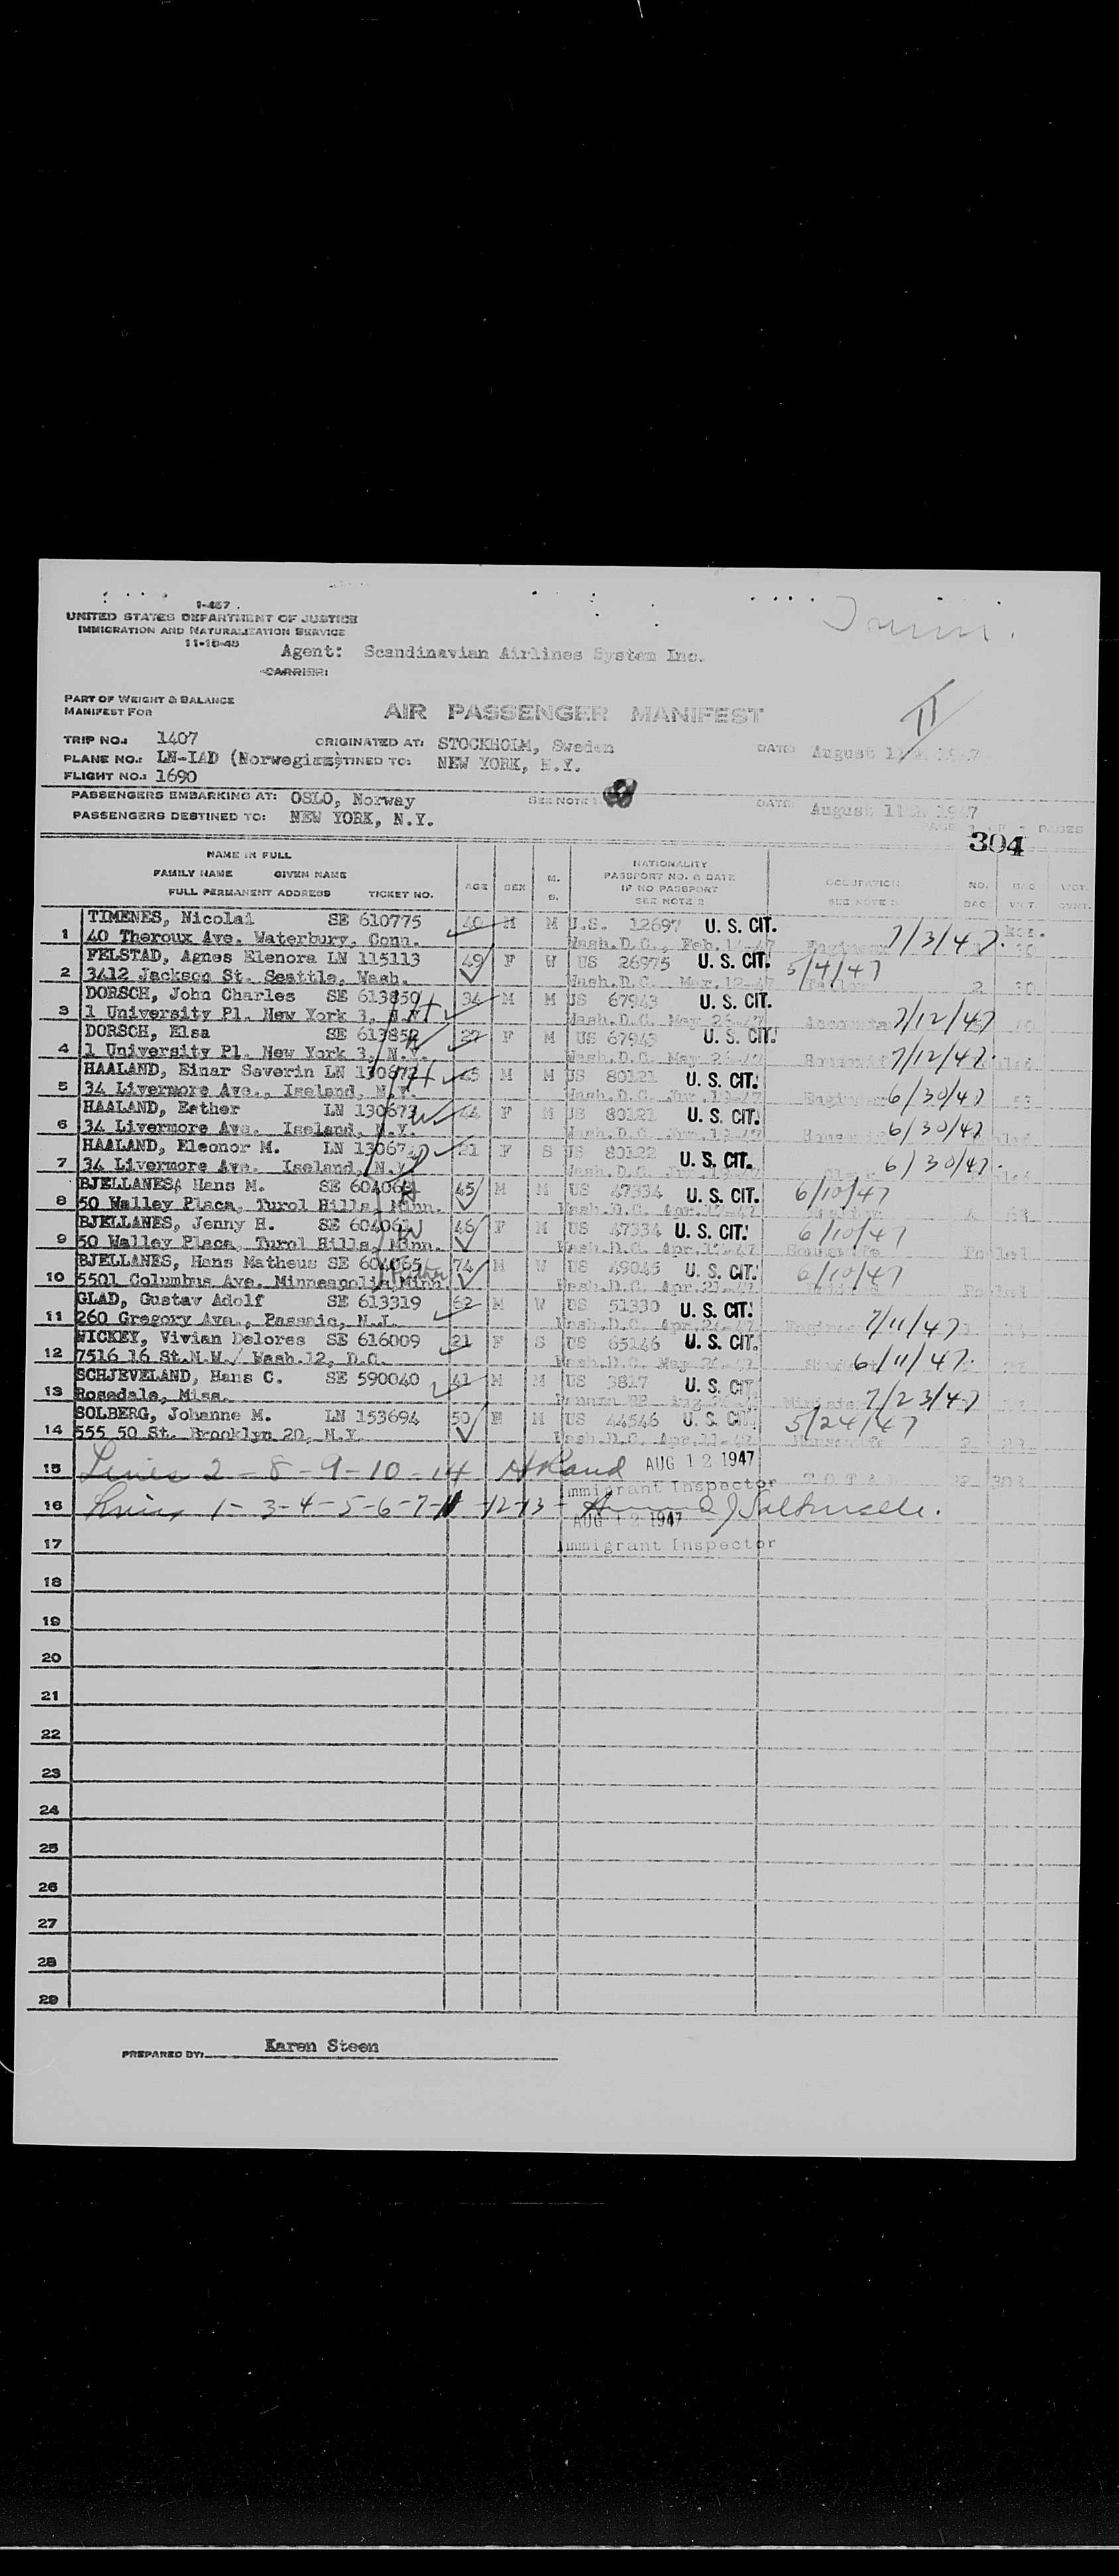 1-457
UNITED STATES DEPARTMENT OF JUSTICE
IMMIGRATION AND NATURALIZATION SERVICE
11-15-45
Agent: Scandinavian Airlines System Inc.
CARRIER:
PART OF WEIGHT & BALANCE
MANIFEST FOR
AIR PASSENGER MANIFEST
II
TRIP NO.: 1407 ORIGINATED AT: STOCKHOLM, Sweden DATE: August
PLANE NO.: LN-IAD (Norwegian) DESTINED TO: NEW YORK, N.Y.
FLIGHT NO.: 1690
PASSENGERS EMBARKING AT: OSLO, Norway SEE NOTE DATE: August 11th 1947
PASSENGERS DESTINED TO: NEW YORK, N.Y. PAGE OF PAGES
304
NAME IN FULL
FAMILY NAME GIVEN NAME
FULL PERMANENT ADDRESS TICKET NO.
AGE SEX M. S.
NATIONALITY
PASSPORT NO. & DATE
IF NO PASSPORT
SEE NOTE 2
OCCUPATION
SEE NOTE
NO. BAG BAG WGT. WGT.
1 TIMENES, Nicolai SE 610775 40 M M U.S. 12697 U. S. CIT.
40 Theroux Ave. Waterbury, Conn. Wash.D.C., Feb. 7/3/47.
2 FELSTAD, Agnes Elenora LN 115113 49 F W US 26975 U. S. CIT. 5/4/47
3412 Jackson St. Seattle, Wash. Wash.D.C. Mar.12-47 2 30
3 DORSCH, John Charles SE 613850 34 M M US 67943 U. S. CIT.
1 University Pl. New York 3, N.Y. Wash.D.C. May 7/12/47
4 DORSCH, Elsa SE 613852 27 F M US 67943 U. S. CIT.
1 University Pl. New York 3, N.Y. Wash.D.C. May 7/12/47.
5 HAALAND, Einar Severin LN 130672 45 M M US 80121 U. S. CIT.
34 Livermore Ave., Iseland, N.Y. Wash.D.C. Engineer 6/30/47
6 HAALAND, Esther LN 130673 44 F M US 80121 U. S. CIT.
34 Livermore Ave. Iseland, N.Y. Wash.D.C. 6/30/47
7 HAALAND, Eleonor M. LN 130674 21 F S US 80122 U. S. CIT.
34 Livermore Ave. Iseland, N.Y. Wash.D.C. 6/30/47.
8 BJELLANES, Hans M. SE 604064 45 M M US 47334 U. S. CIT. 6/10/47
50 Walley Place, Turol Hills, Minn. Wash.D.C. Apr.
9 BJELLANES, Jenny H. SE 60406 46 F M US 47334 U. S. CIT. 6/10/47
50 Walley Place, Turol Hills, Minn. Wash.D.C. Apr. Housewife Pooled
10 BJELLANES, Hans Matheus SE 604065 74 M W US 49045 U. S. CIT. 6/10/47
5501 Columbus Ave. Minneapolis, Minn. Wash.D.C. Apr. Pooled
11 GLAD, Gustav Adolf SE 613319 62 M W US 51330 U. S. CIT.
260 Gregory Ave., Passaic, N.J. Wash.D.C. Apr. 7/11/47
12 WICKEY, Vivian Delores SE 616009 21 F S US 65146 U. S. CIT.
7516 16 St.N.W./ Wash.12, D.C. Wash.D.C. May 6/11/47.
13 SCHJEVELAND, Hans C. SE 590040 41 M M US 3817 U. S. CIT.
Rosedale, Miss. 7/23/47
14 SOLBERG, Johanne M. LN 153694 50 F M US 44546 U. S. CIT. 5/24/47
555 50 St. Brooklyn 20, N.Y. Wash.D.C. Apr. Housewife
15 Lines 2-8-9-10-14 AUG 12 1947
Immigrant Inspector TOTAL
16 Lines 1-3-4-5-6-7-11-12-13-
AUG 12 1947
17 Immigrant Inspector
18
19
20
21
22
23
24
25
26
27
28
29
PREPARED BY: Karen Steen